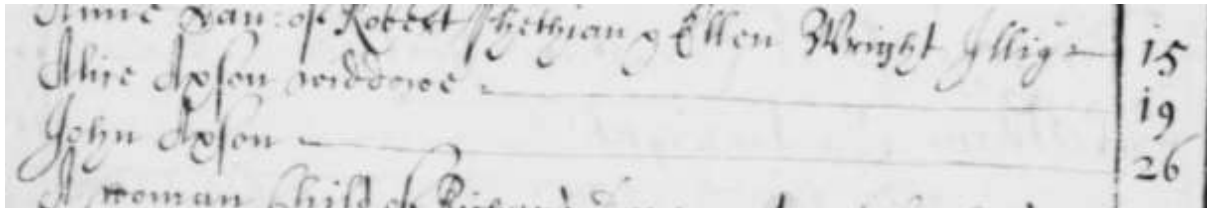 Anne Dau: of Robert Shethian & Ellen Wright Illig 15
Alice Axson widdowe 19
John Axson 26
A woman Child of Richard